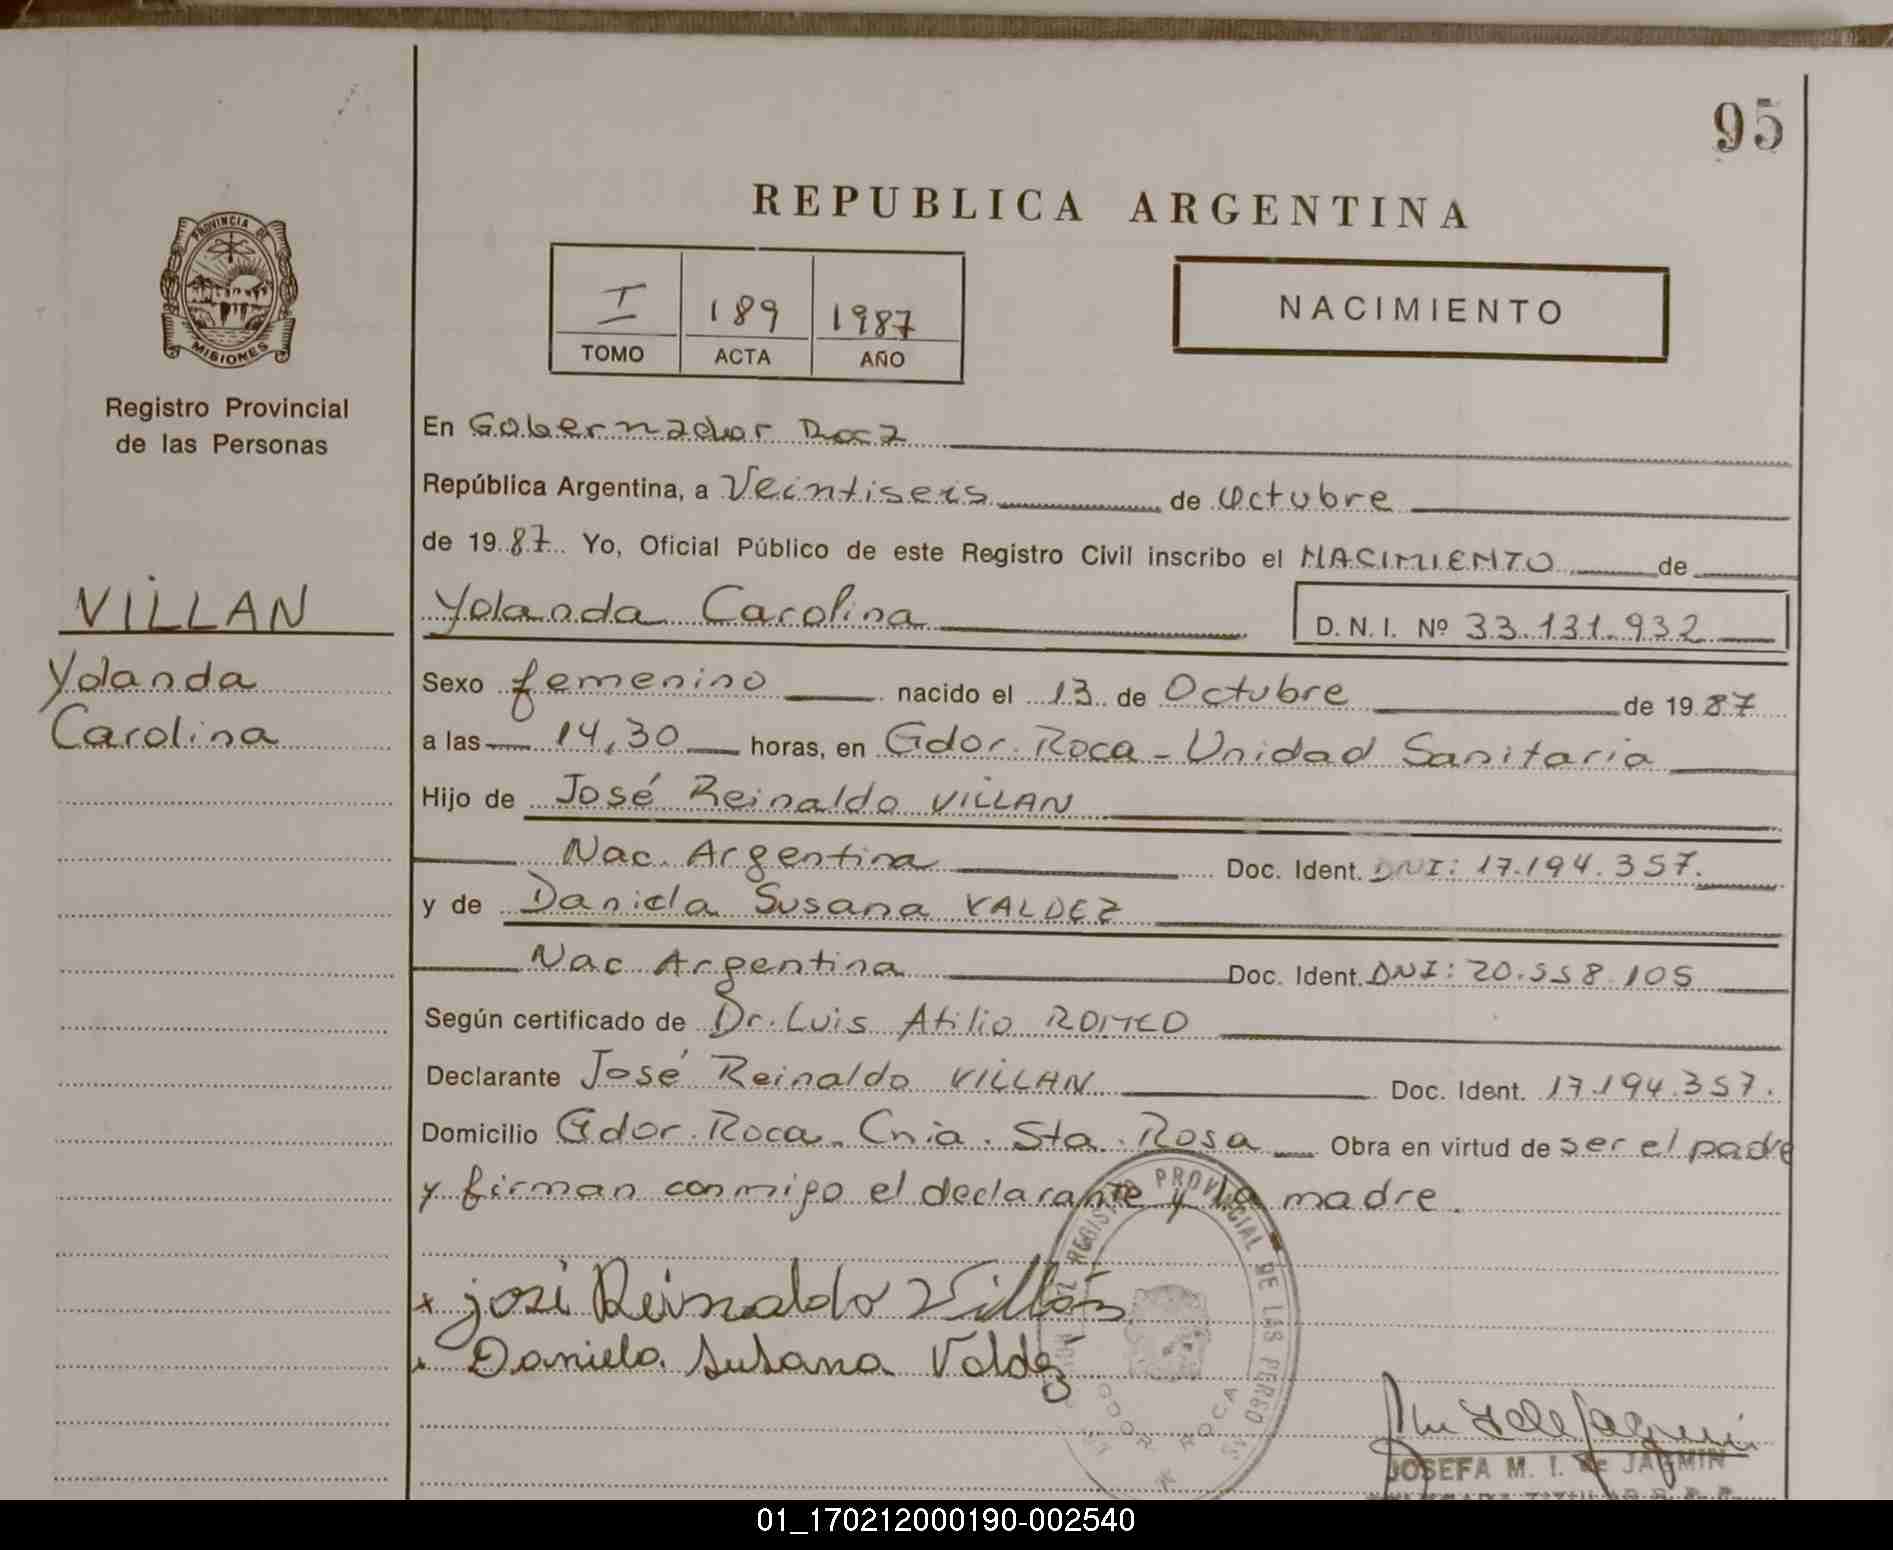 95
REPUBLICA ARGENTINA
PROVINCIA DE
MISIONES
Registro Provincial
de las Personas
I 189 1987
TOMO ACTA AÑO
NACIMIENTO
En Gobernador Roca
República Argentina, a Veintiseis de Octubre
de 1987. Yo, Oficial Público de este Registro Civil inscribo el NACIMIENTO de
VILLAN
Yolanda
Carolina
Yolanda Carolina D. N. I. Nº 33.131.932
Sexo femenino nacido el 13 de Octubre de 1987
a las 14,30 horas, en Gdor. Roca - Unidad Sanitaria
Hijo de José Reinaldo VILLAN
Nac. Argentina Doc. Ident. DNI: 17.194.357.
y de Daniela Susana VALDEZ
Nac Argentina Doc. Ident. DNI: 20.558.105
Según certificado de Dr. Luis Atilio ROMEO
Declarante José Reinaldo VILLAN Doc. Ident. 17.194.357.
Domicilio Gdor. Roca. Cnia. Sta. Rosa Obra en virtud de ser el padre
y firman conmigo el declarante y la madre.
REGISTRO PROVINCIAL DE LAS PERSO
GDOR ROCA
x josé Reinaldo Villán
x Daniela Susana Valdez
JOSEFA M. I. de JAQMIN
01_170212000190-002540